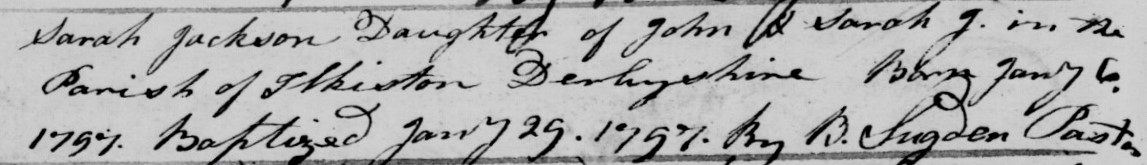 Sarah Jackson Daughter of John & Sarah J. in the
Parish of Ilkiston Derbyshire Born Jan'y 6.
1797. Baptized Jan'y 29. 1797. By B. Sugden Pastor